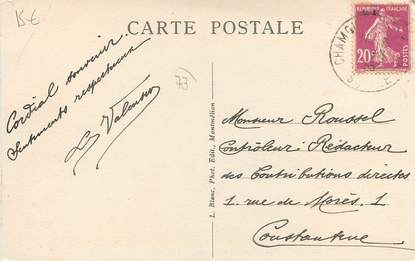 15€
CARTE POSTALE
RÉPUBLIQUE FRANÇAISE
20c
POSTES
CHAMO
Cordial souvenir
Sentiments respectueux
73
L. Blanc, Phot. Edit., Montmélian
Monsieur Roussel
Contrôleur Rédacteur
des Contributions directes
1. rue de Morès. 1
Constantine